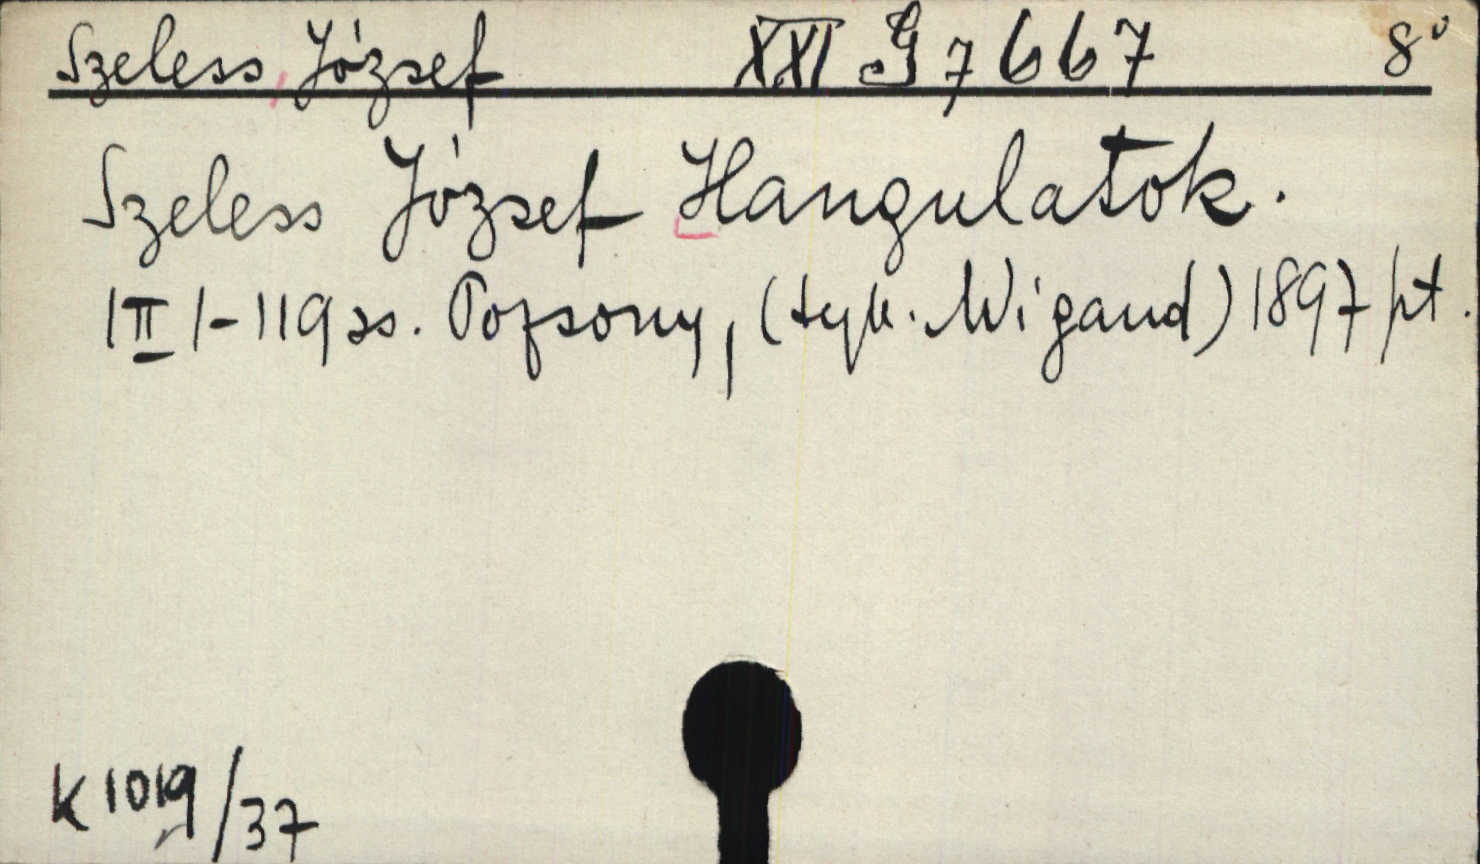 Szeless, József XXI G 7667 8°
Szeless József Hangulatok.
|II| 1-119 ss. Pozsony, (typ. Wigand) 1897 pt.
K 1019/37